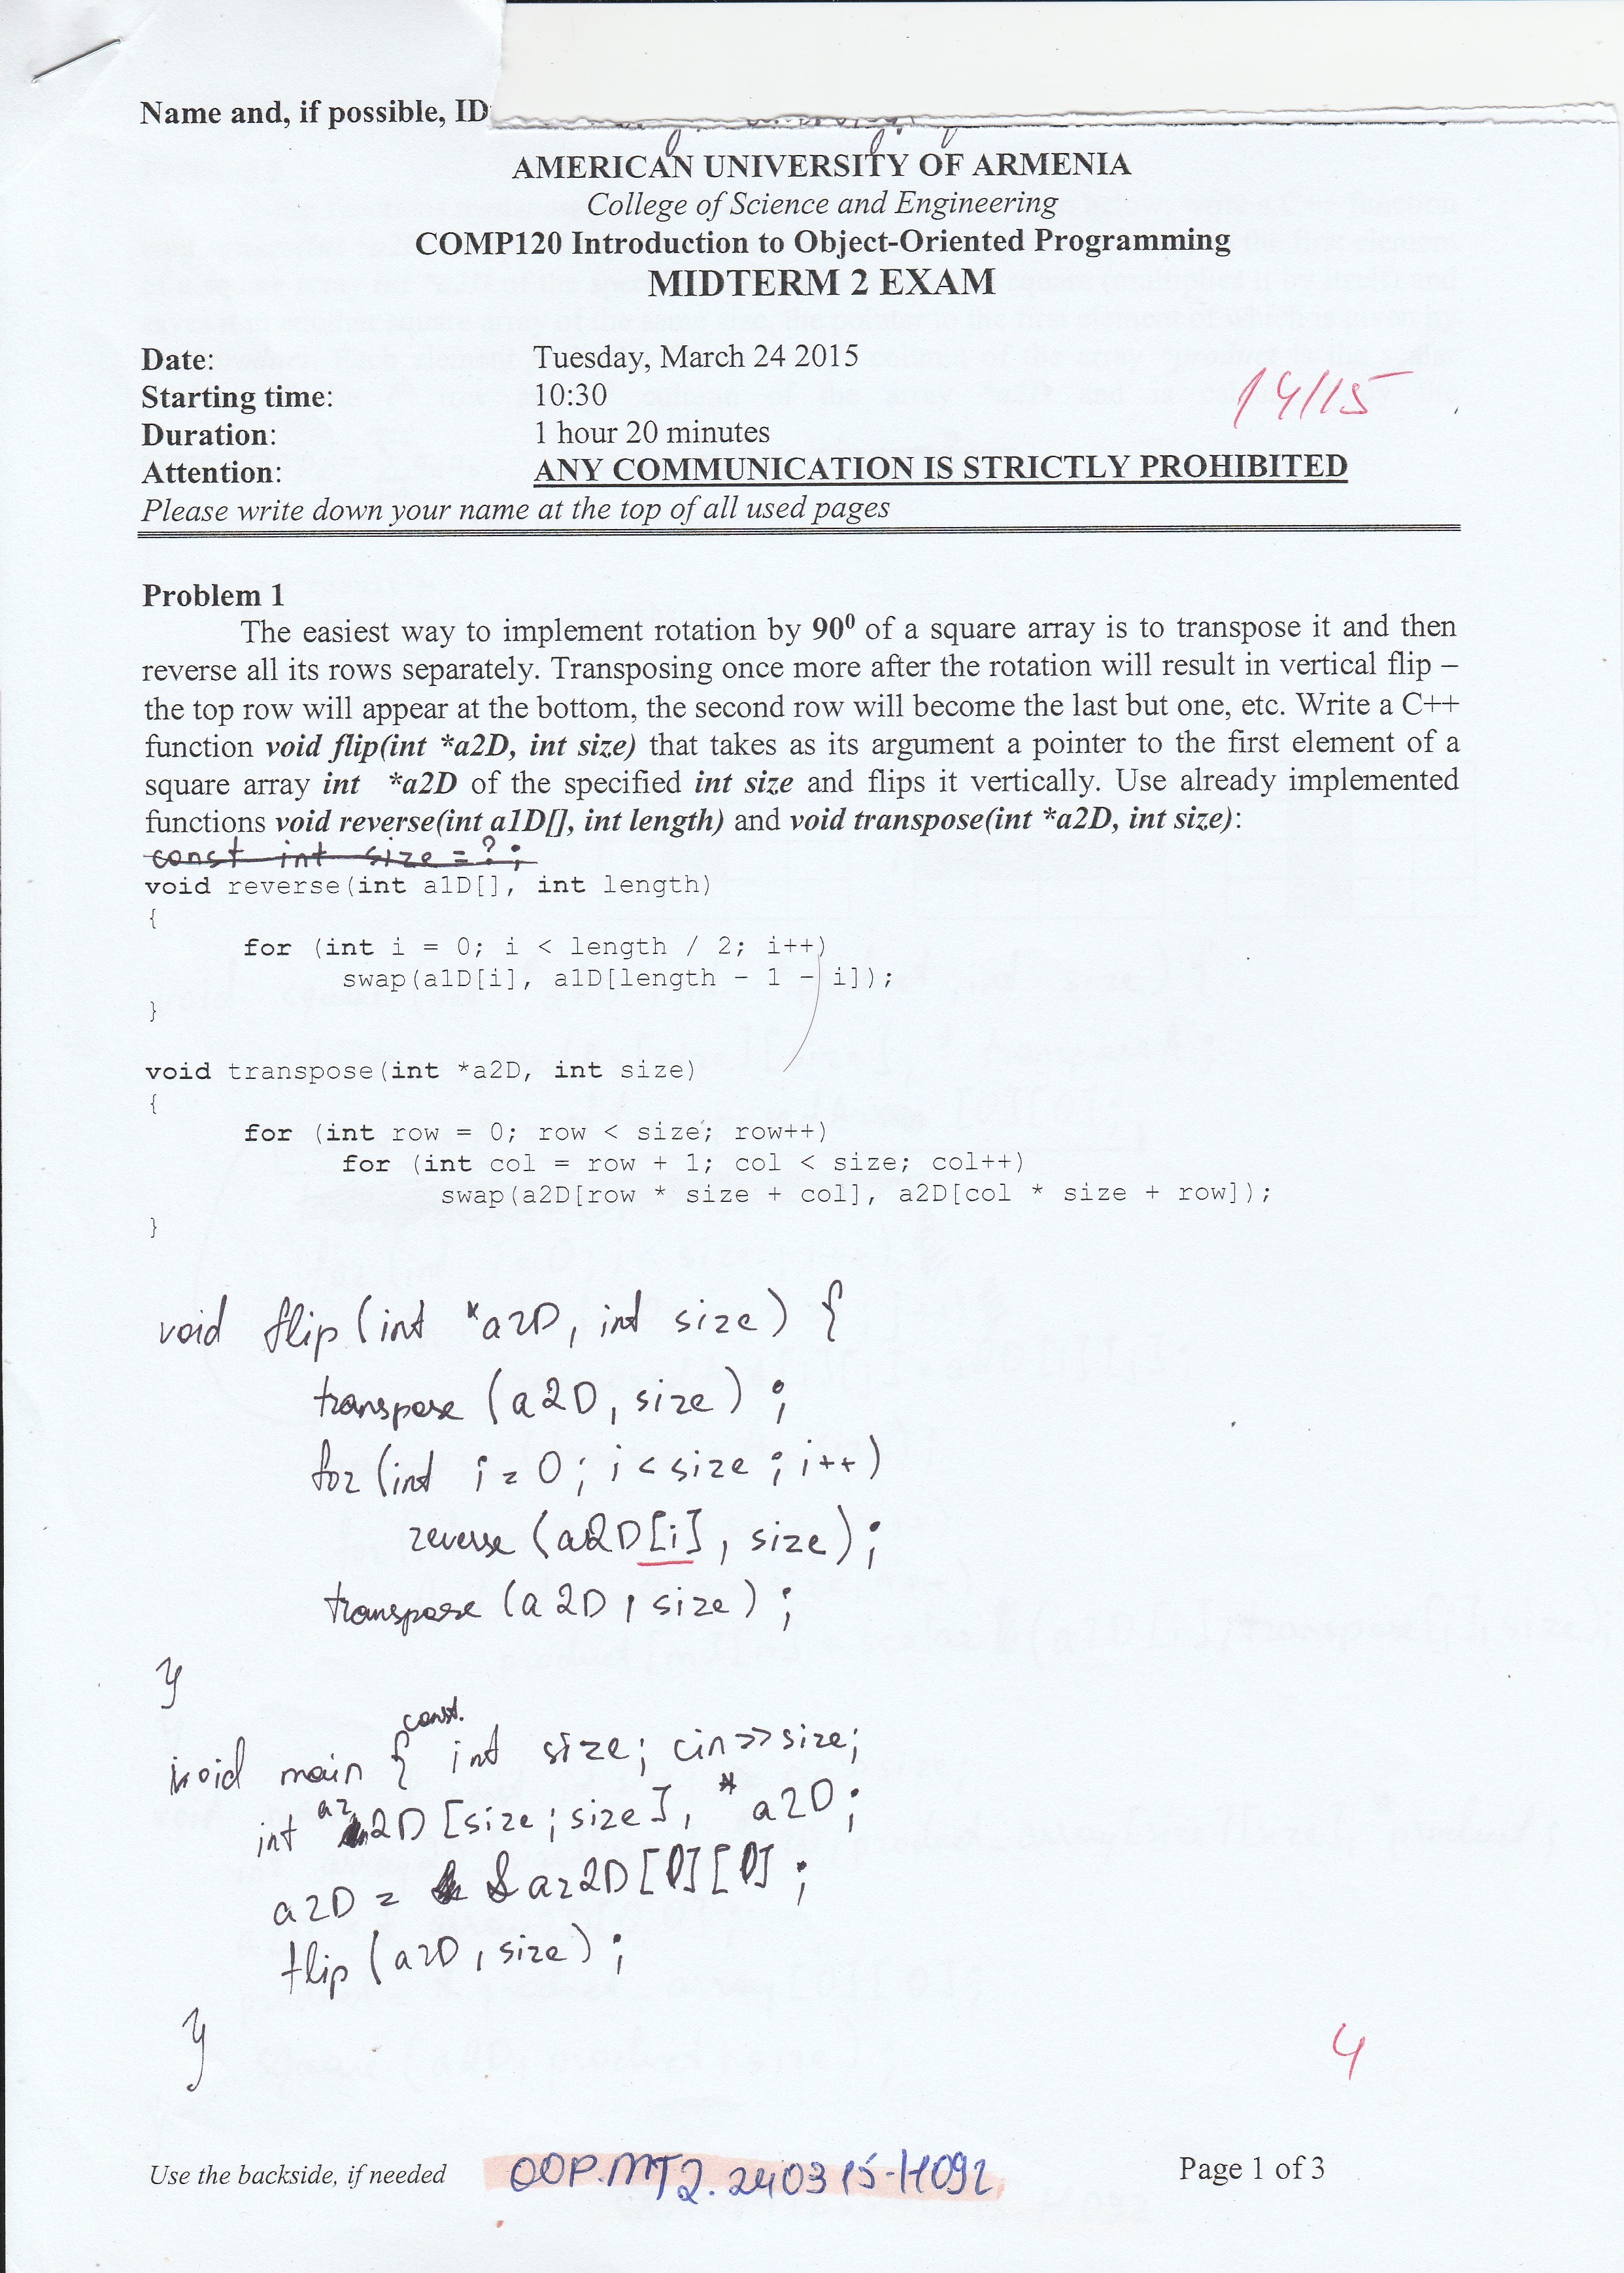 Name and, if possible, ID
AMERICAN UNIVERSITY OF ARMENIA
College of Science and Engineering
COMP120 Introduction to Object-Oriented Programming
MIDTERM 2 EXAM
Date: Tuesday, March 24 2015
Starting time: 10:30
14/15
Duration: 1 hour 20 minutes
Attention: ANY COMMUNICATION IS STRICTLY PROHIBITED
Please write down your name at the top of all used pages
Problem 1
The easiest way to implement rotation by 90⁰ of a square array is to transpose it and then
reverse all its rows separately. Transposing once more after the rotation will result in vertical flip –
the top row will appear at the bottom, the second row will become the last but one, etc. Write a C++
function void flip(int *a2D, int size) that takes as its argument a pointer to the first element of a
square array int *a2D of the specified int size and flips it vertically. Use already implemented
functions void reverse(int a1D[], int length) and void transpose(int *a2D, int size):
const int size = ?;
void reverse(int a1D[], int length)
{
for (int i = 0; i < length / 2; i++)
swap(a1D[i], a1D[length - 1 - i]);
}
void transpose(int *a2D, int size)
{
for (int row = 0; row < size; row++)
for (int col = row + 1; col < size; col++)
swap(a2D[row * size + col], a2D[col * size + row]);
}
void flip(int *a2D, int size) {
transpose (a2D, size);
for (int i = 0; i < size; i++)
reverse (a2D[i], size);
transpose (a2D, size);
}
void main { const int size; cin>>size;
int ar2D [size; size], *a2D;
a2D = &ar2D[0][0];
flip (a2D, size);
}
4
Use the backside, if needed OOP.MT2.240315-H092 Page 1 of 3